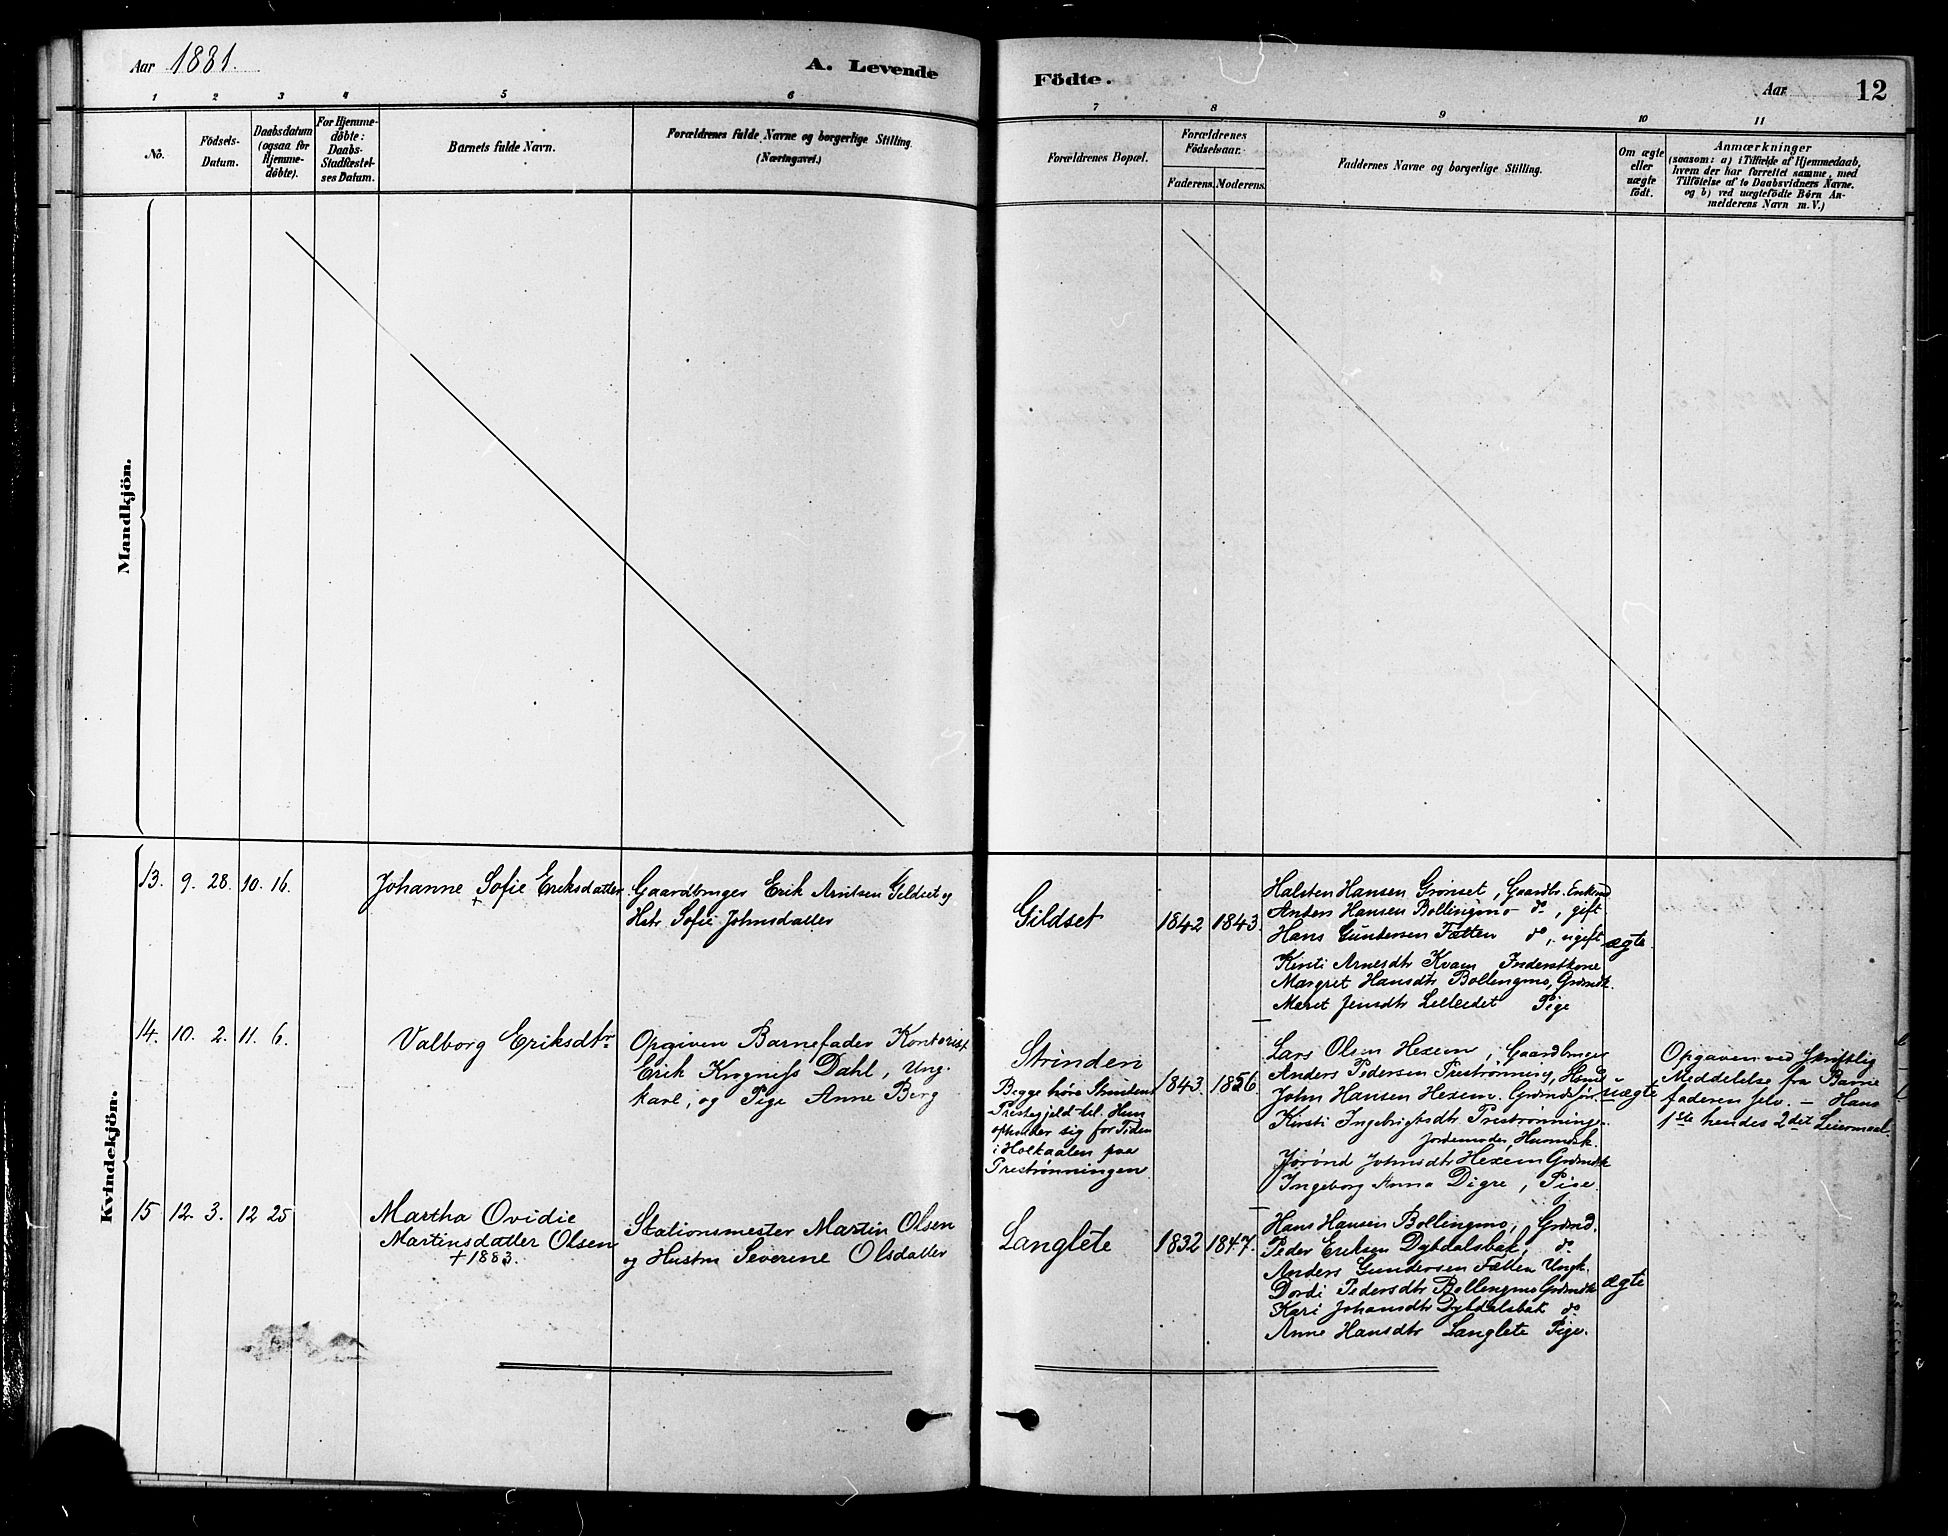 Aar 1881.
A. Levende
Födte.
Aar
12
1 2 3 4 5 6
7 8 9 10 11
No.
Födsels-
Datum.
Daabsdatum
(ogsaa for
Hjemme-
döbte).
For Hjemme-
döbte:
Daabs-
Stadfæstel-
ses Datum.
Barnets fulde Navn.
Forældrenes fulde Navne og borgerlige Stilling.
(Næringsvei.)
Forældrenes Bopæl.
Forældrenes
Födselsaar.
Faderens. Moderens.
Faddernes Navne og borgerlige Stilling.
Om ægte
eller
uægte
födt.
Anmærkninger
(saasom: a) i Tilfælde af Hjemmedaab,
hvem der har forrettet samme, med
Tilföielse af to Daabsvidners Navne.
og b) ved uægtefödte Börn An-
melderens Navn m. V.)
Mandkjön.
Kvindekjön.
13. 9. 28. 10. 16.
Johanne Sofie Eriksdatter
+
Gaardbruger Erik Arntsen Gildset og
Hstr. Sofie Johnsdatter
Gildset
1842 1843.
Halsten Hansen Grønset, Gaardbr. Enkmd
Anders Hansen Bollingmo do, gift
Hans Gundersen Fætten do, ugift
Kirsti Arnesdtr Kvam Inderstkone
Margret Hansdtr Bollingmo, Grdmdk.
Meret Jensdtr Pige
ægte.
14. 10. 2. 11. 6.
Valborg Eriksdtr
Opgiven Barnefader Kontorist
Erik Dahl, Ung-
karl, og Pige Anne Berg
Strinden
Begge høre Strindens
Prestegjeld til. Hun
opholder sig for Tiden
i Holkaalen paa
Prestrønningen
1843. 1856.
Lars Olsen Hexem, Gaardbruger
Anders Pedersen Prestrønning, Husmd
John Hansen Hexem. Grdmdsøn.
Kirsti Ingebrigtsdtr Prestrønningen
Jordemoder, Husmdsk.
Jørønd Johnsdtr Hexem Grdmdsk
Ingeborg Anna Digre, Pige.
uægte
Opgaven ved Skriftlig
Meddelelse fra Barne
faderen selv. — Hans
1ste hendes 2det Leiermaal.
15 12. 3. 12 25
Martha Ovidie
Martinsdatter Olsen
+ 1883.
Stationsmester Martin Olsen
og Hustru Severine Olsdatter
Langlete
1832 1847.
Hans Hansen Bollingmo, Grdmd.
Peder Eriksen Dybdalsbak, do
Anders Gundersen Fætten Ungk.
Dordi Pedersdtr Bollingmo Grdmdsk
Kari Johansdtr Dybdalsbak do
Anne Hansdtr Langlete Pige.
ægte